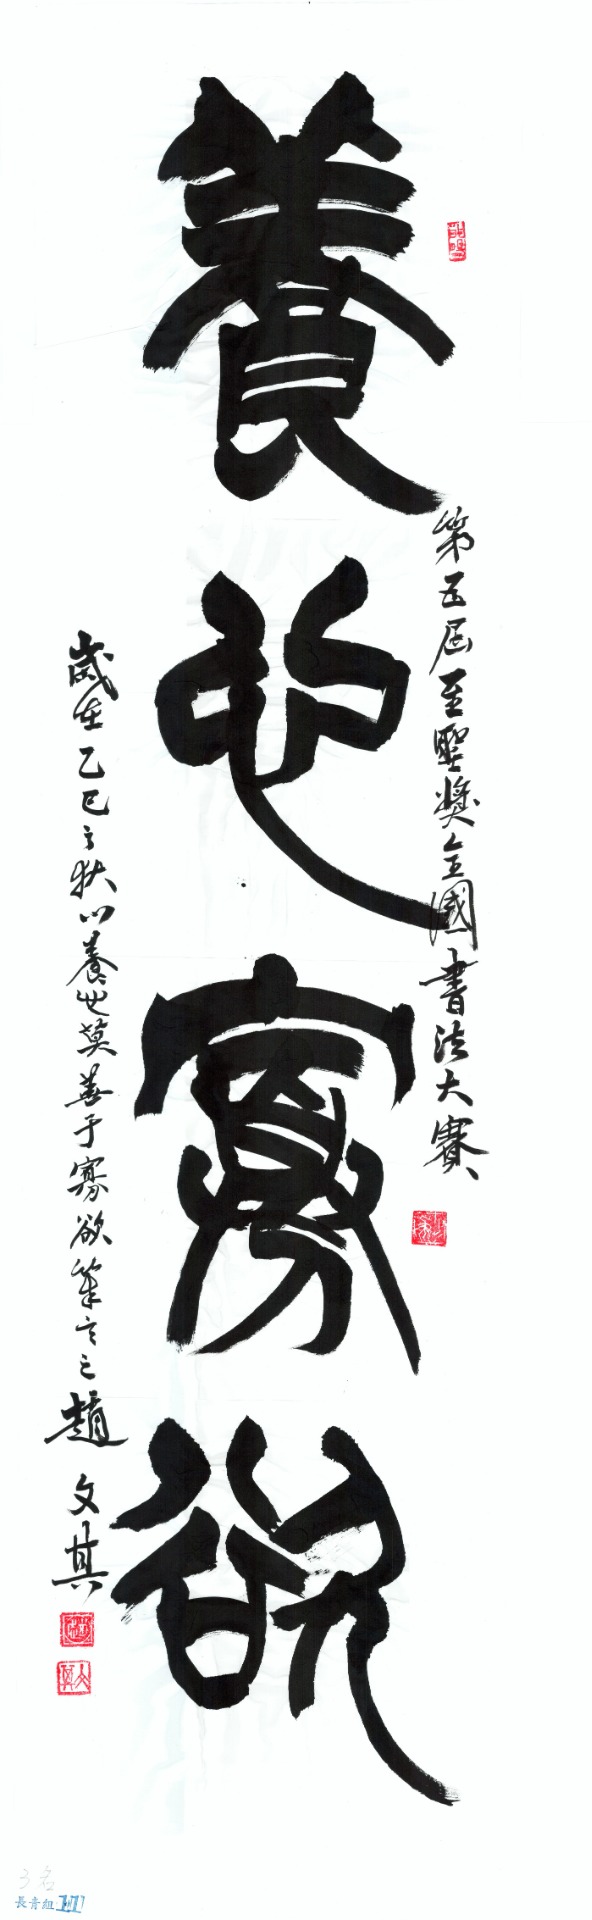 養心寡欲
第五屆至聖獎全國書法大賽
歲在乙巳之秋以養心莫善于寡欲筆言之趙文其
3名
長青組 111